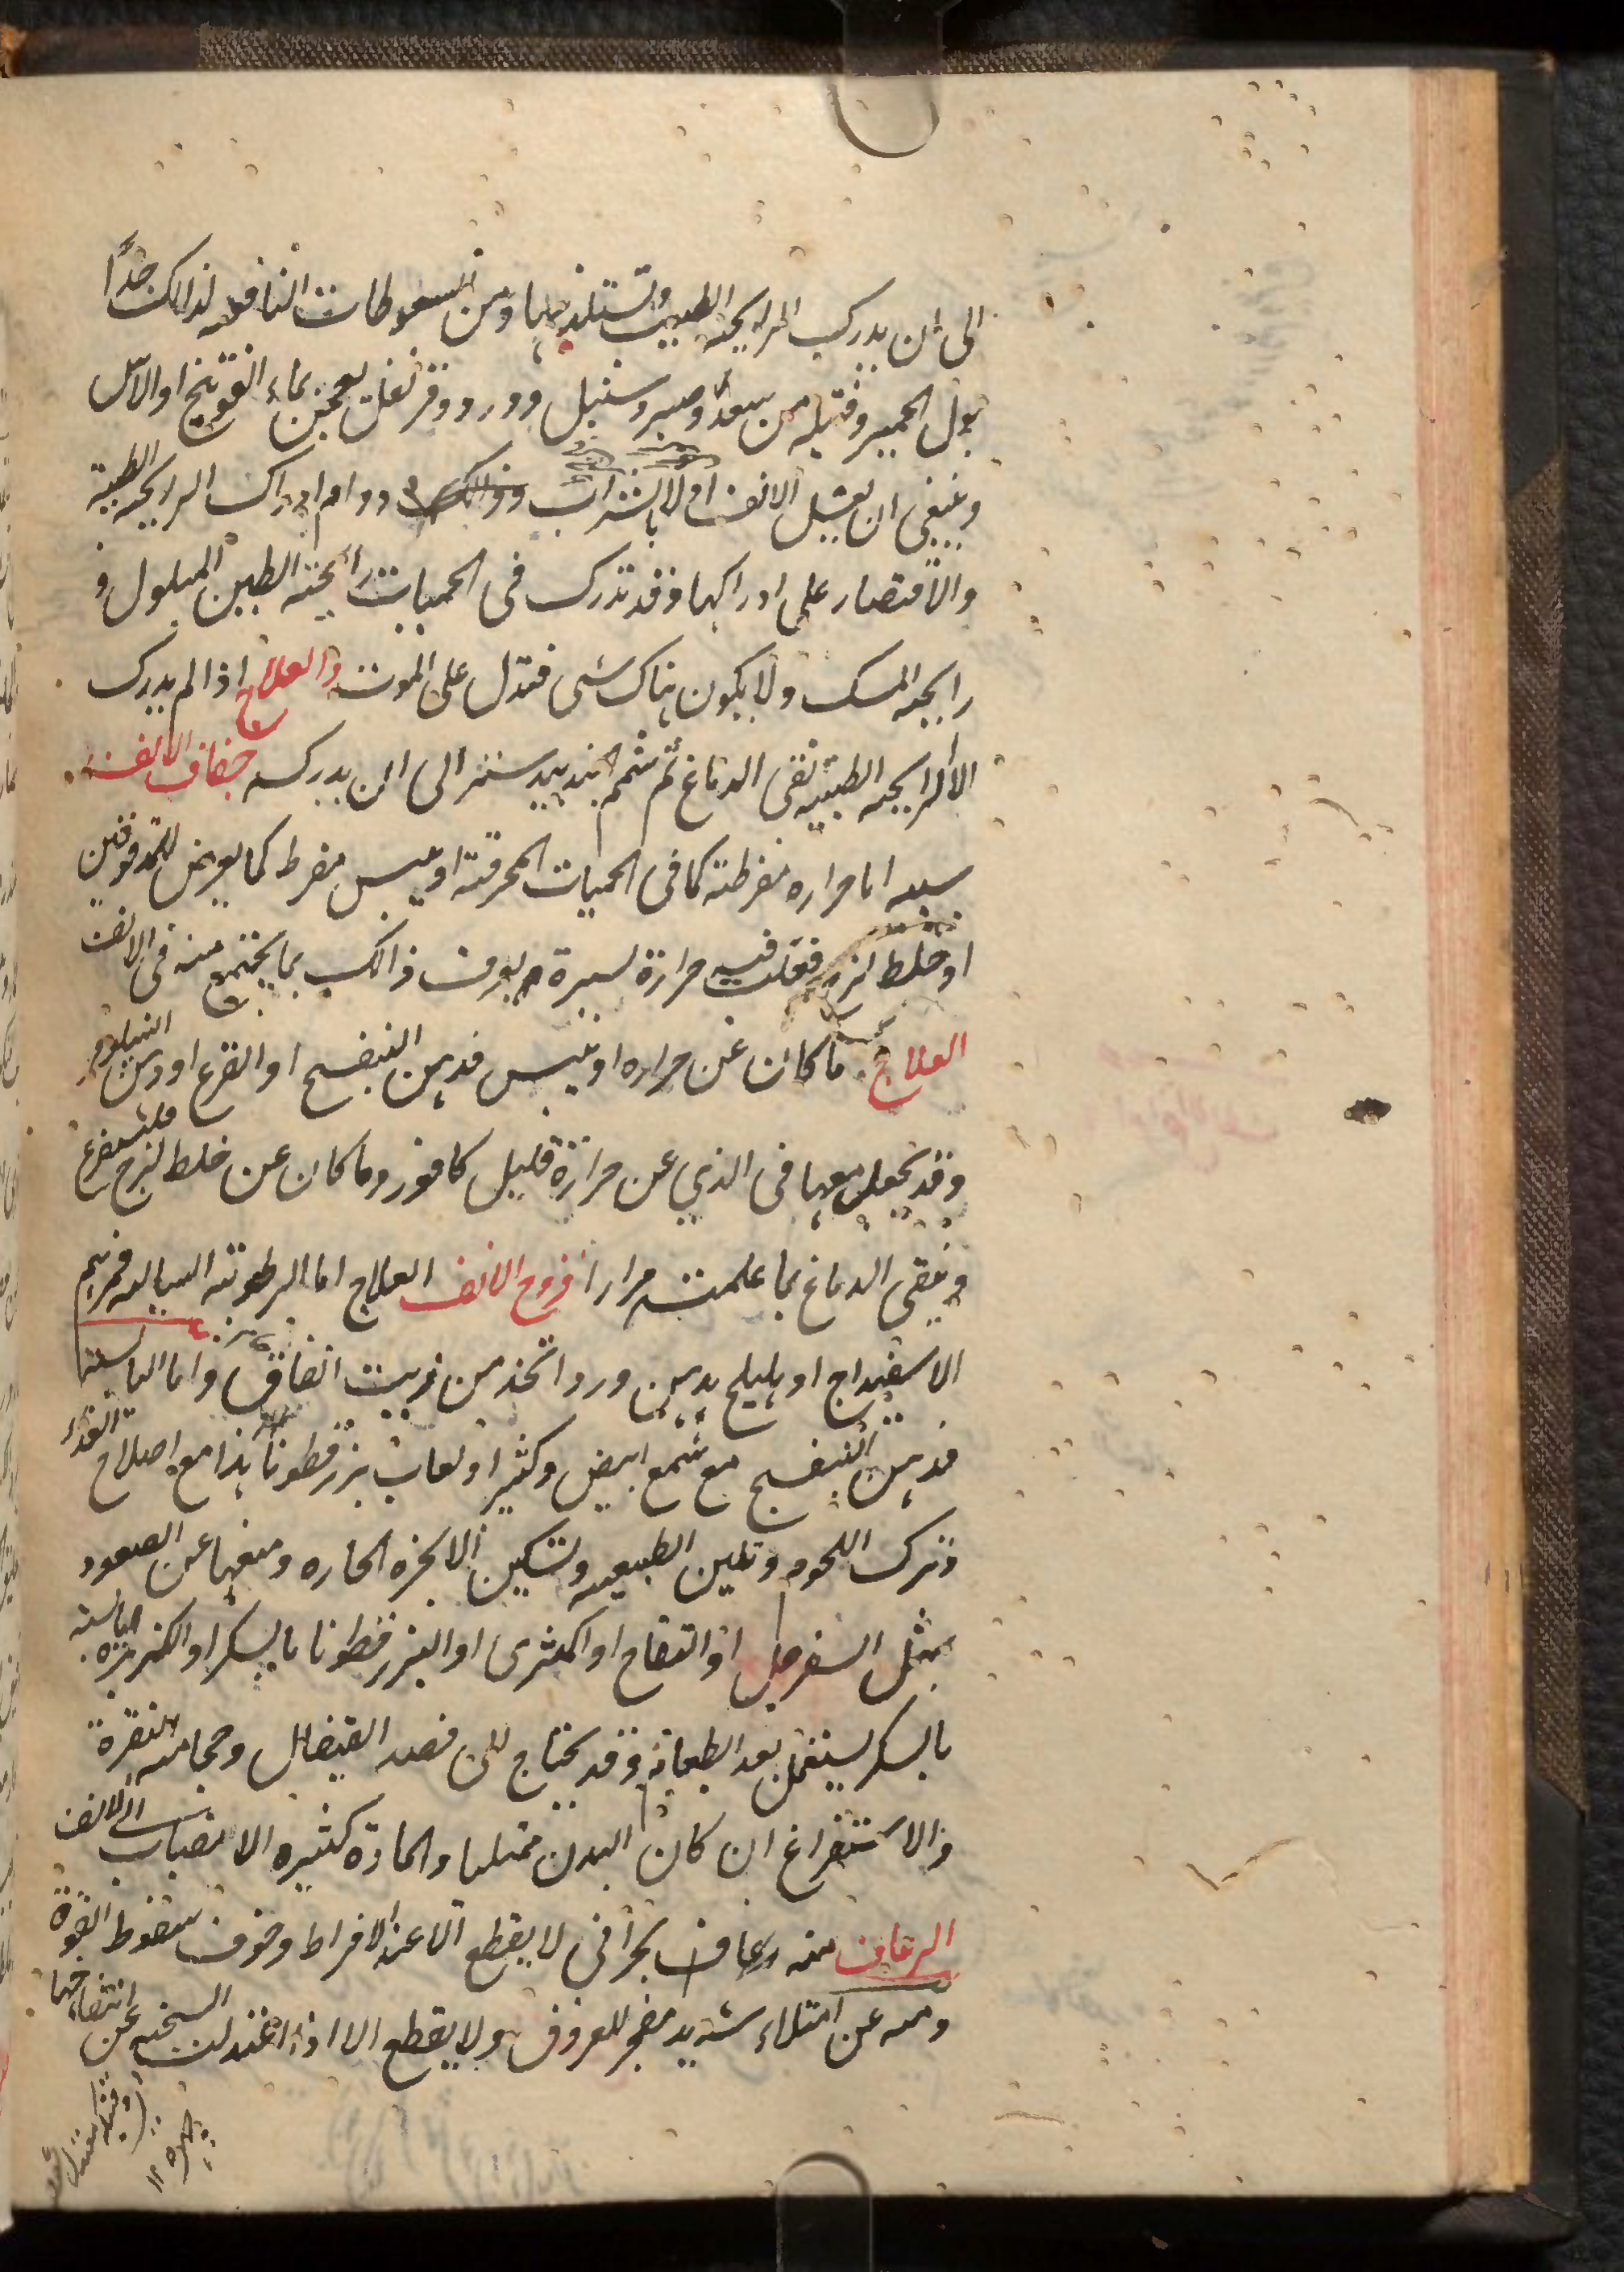 الى ان يدرك الرايحه الطيبه وتستلذ بها ومن السعوطات النافعه لذالك جدًا
بول الحمير وفتيله من سعد وصبر وسنبل وورد وقرنفل يعجن بماء الفوتنج او الآس
وينبغي ان يغسل الانف اولا بالشراب ودوام ادراك الرايحه الطيبة
والاقتصار على ادراكها وقد تدرك فى الحميات رائحته الطين المبلول و
رايحه المسك ولا يكون هناك شى فتدل على الموت والعلاج اذا لم يدرك
الا الرايحه الطيبه نقى الدماغ ثم شمم الجندبيدستر الى ان يدركه جفاف الانف
سببه اما حراره مفرطته كما فى الحميات المحرقته او يبس مفرط كما يعرض للمدقوقين
او خلط لزج فعلت فيه حرارة يسيرة ويعرف ذالك بما يجتمع منه فى الانف
العلاج ما كان عن حراره او يبس فدهن البنفسج او القرع او دهن النيلوفر
وقد يجعل معها فى الذي عن حرارة قليل كافور وما كان عن خلط لزج فليستفرغ
وينقى الدماغ بما علمت مرارا قروح الانف العلاج اما الرطوبته السياله فمرهم
الاسفيداج او هليلج بدهن ورد اتخذ من زيت انفاق واما اليابسته
فدهن البنفسج مع شمع ابيض وكثيرا ولعاب بزرقطونا هذا مع اصلاح الغذاء
وترك اللحوم وتليين الطبيعه وتسكين الابخره الحاره ومنعها عن الصعود
بمثل السفرجل او التفاح او الكمثرى او البزرقطونا بالسكر او الكزبره اليابسته
بالسكر يستعمل بعد الطعام وقد يحتاج الى فصد القيفال وحجامه النقرة
والاستفراغ ان كان البدن ممتليا والمادة كثيره الانصباب الى الانف
الرعاف منه رعاف بحرانى لا يقطع الا عند الافراط وخوف سقوط القوة
ومنه عن امتلاء شديد مفجر للعروق ولا يقطع الا اذا اعتدلت السخنه عن انتفاخها